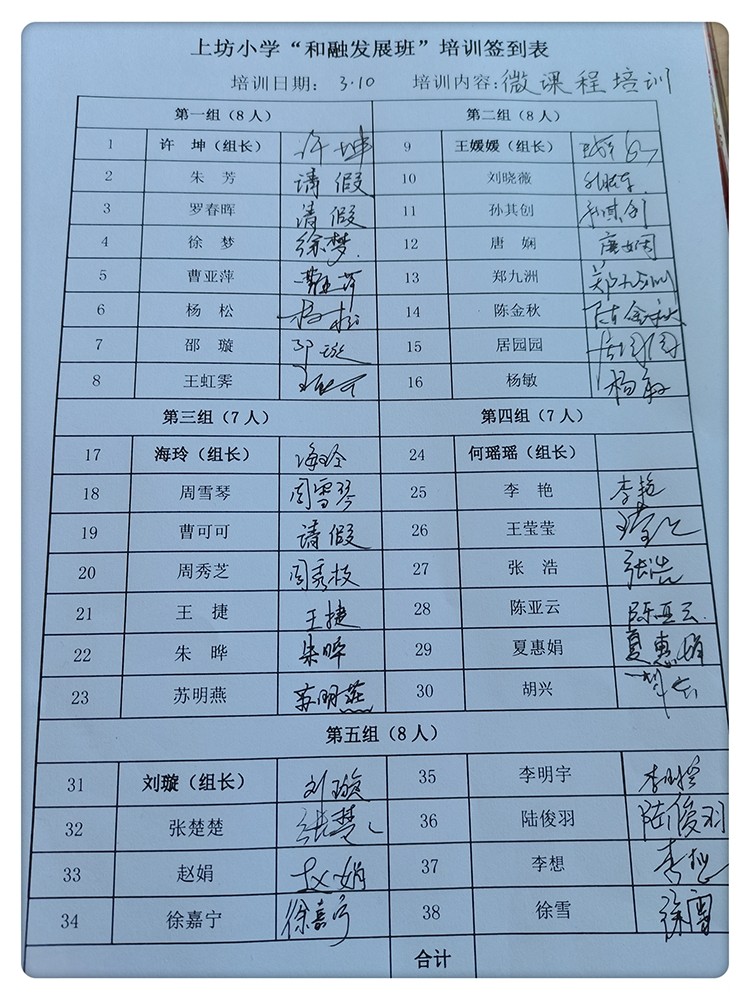 上坊小学“和融发展班”培训签到表
培训日期： 3.10 培训内容：微课程培训
第一组（8人） 第二组（8人）
1 许 坤（组长） 许坤 9 王媛媛（组长）
2 朱 芳 请假 10 刘晓薇
3 罗春晖 请假 11 孙其创 孙其创
4 徐 梦 徐梦 12 唐 娴 唐娴
5 曹亚萍 曹亚萍 13 郑九洲 郑九洲
6 杨 松 杨松 14 陈金秋 陈金秋
7 邵 璇 邵璇 15 居园园 居园园
8 王虹霁 16 杨敏 杨敏
第三组（7人） 第四组（7人）
17 海玲（组长） 海玲 24 何瑶瑶（组长）
18 周雪琴 周雪琴 25 李 艳 李艳
19 曹可可 请假 26 王莹莹
20 周秀芝 周秀枝 27 张 浩 张浩
21 王 捷 王捷 28 陈亚云 陈亚云
22 朱 晔 朱晔 29 夏惠娟 夏惠娟
23 苏明燕 苏明燕 30 胡兴
第五组（8人）
31 刘璇（组长） 刘璇 35 李明宇
32 张楚楚 张楚楚 36 陆俊羽 陆俊羽
33 赵娟 赵娟 37 李想 李想
34 徐嘉宁 徐嘉宁 38 徐雪 徐雪
合计